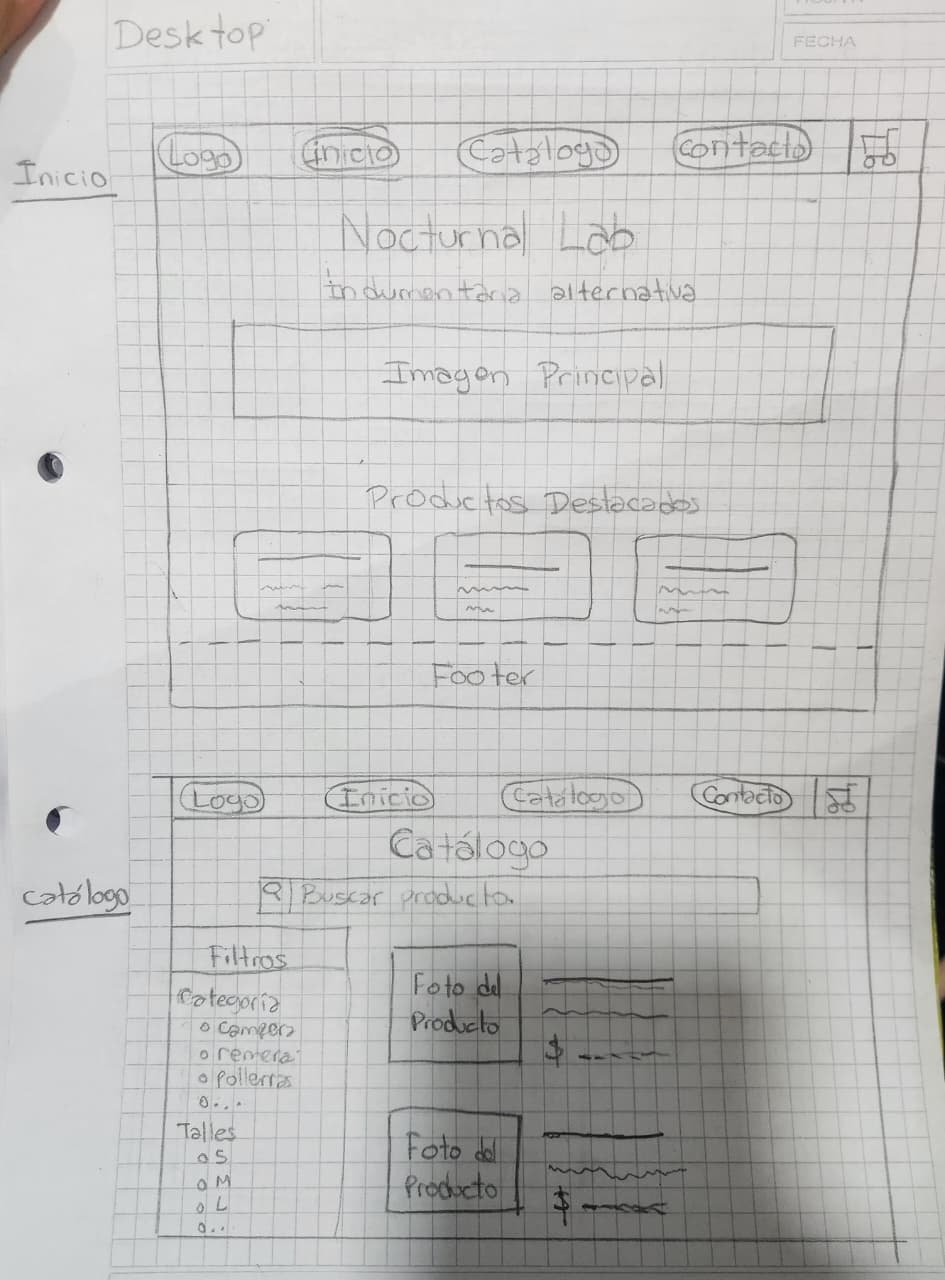 Desktop
FECHA
Inicio
Logo inicio Catálogo contacto
Nocturnal Lab
indumentaria alternativa
Imagen Principal
Productos Destacados
Footer
catálogo
Logo Inicio Catálogo Contacto
Catálogo
Buscar producto.
Filtros
Categoría
o campera
o remera
o Pollerras
o...
Talles
o S
o M
o L
o..
Foto del
Producto
$
Foto del
Producto
$